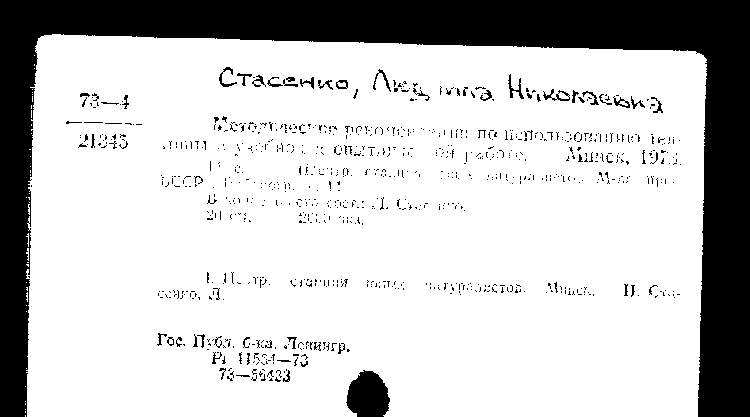 Стасенко, Людмила Николаевна
73—4
21345
Методические рекомендации по использованию теп-
в учебно-опытнической работе. Минск, 1973.
с. (Центр. станция юных натуралистов М-ва про-
БССР
В конце текста сост.: Л. Стасенко.
20 см. 2000 экз.
I. Центр. станция юных натуралистов. Минск. II. Ста-
сенко, Л.
Гос. Публ. б-ка. Ленингр.
Рг 11554—73
73—56433